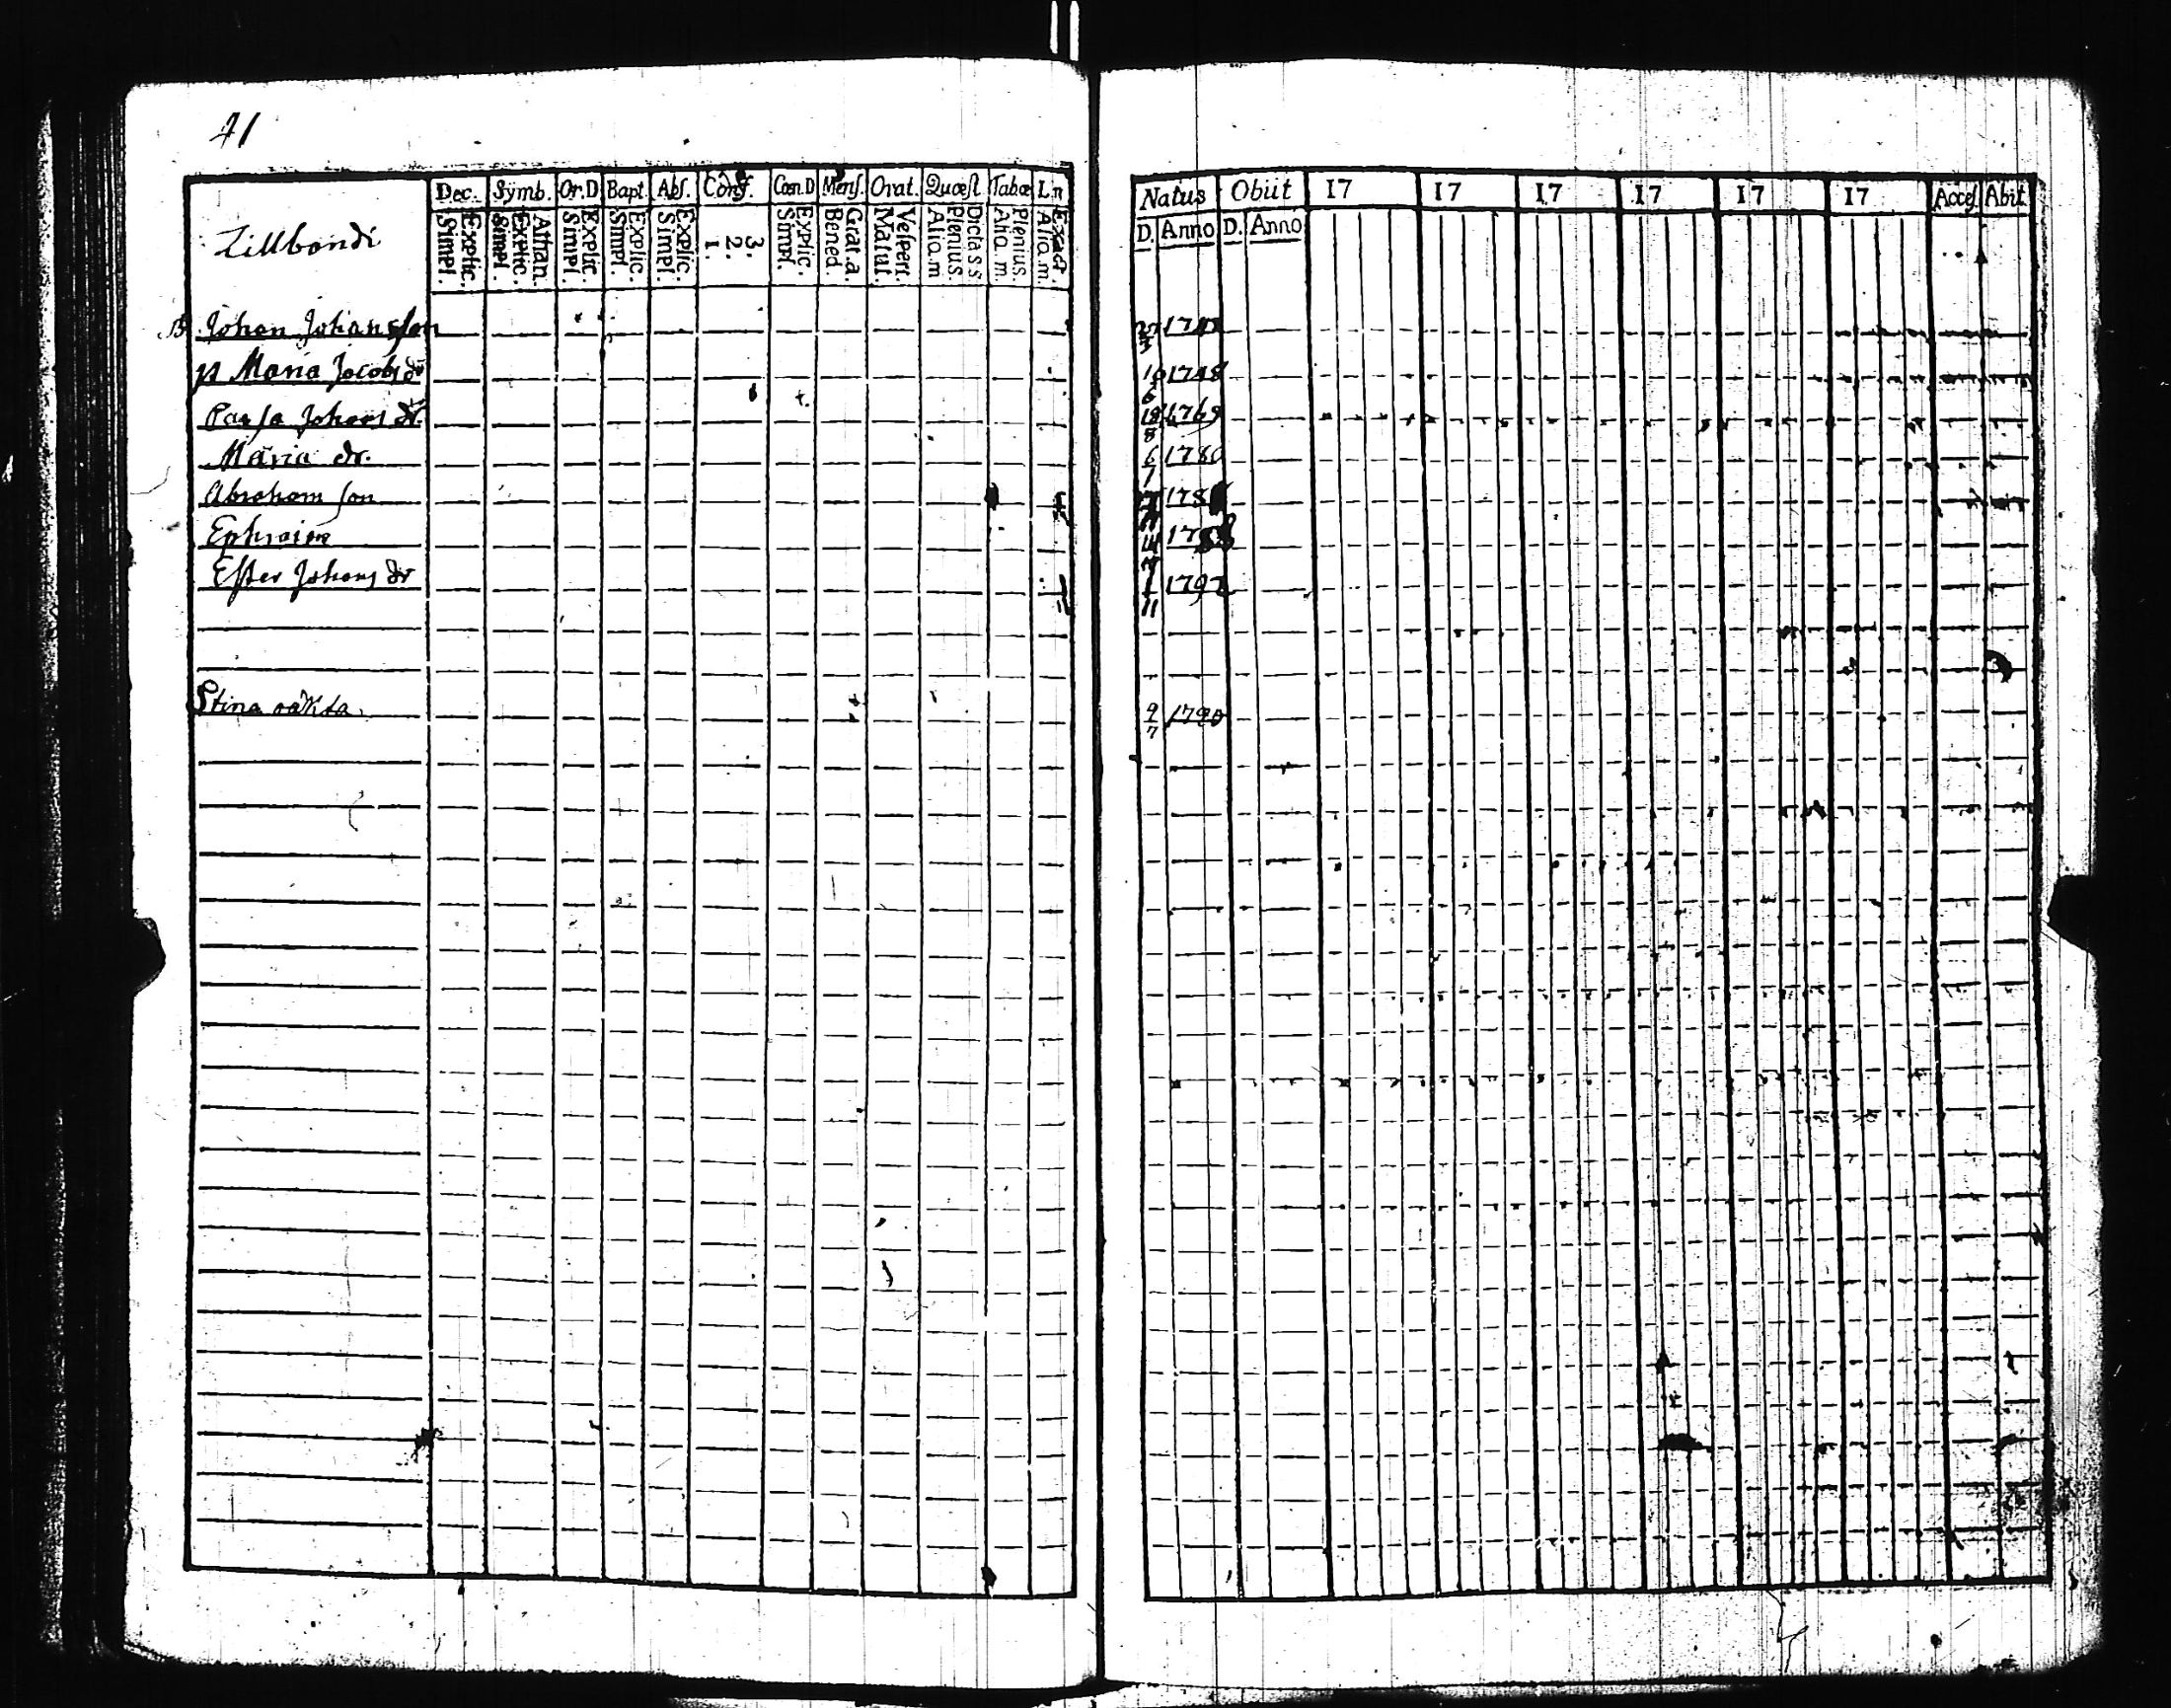 41
Lillbondi
Dec. Symb. Or.D Bapt. Abs. Conf. Cœn.D Mens. Orat. Quæst Tabæ L.n
Explic. Simpl. Athan. Explic. Simpl. Explic. Simpl. Explic. Simpl. Explic. Simpl. 3. 2. 1. Explic. Simpl. Grat. a. Bened. Vespert. Matut. Dicta s.s Plenius. Alia.m Plenius. Alia.m. Exact. Alia.m.
B Johan Johansson
Maria Jacobs dr
Johans dr.
Maria dr.
Abraham son
Ephraim
Ester Johans dr
Stina
Natus Obiit 17 17 17 17 17 17 Acces. Abit
D. Anno D. Anno
10/6 1748
18/8 1769
6/1 1780
178
1788
1/11 1792
9/7 1790